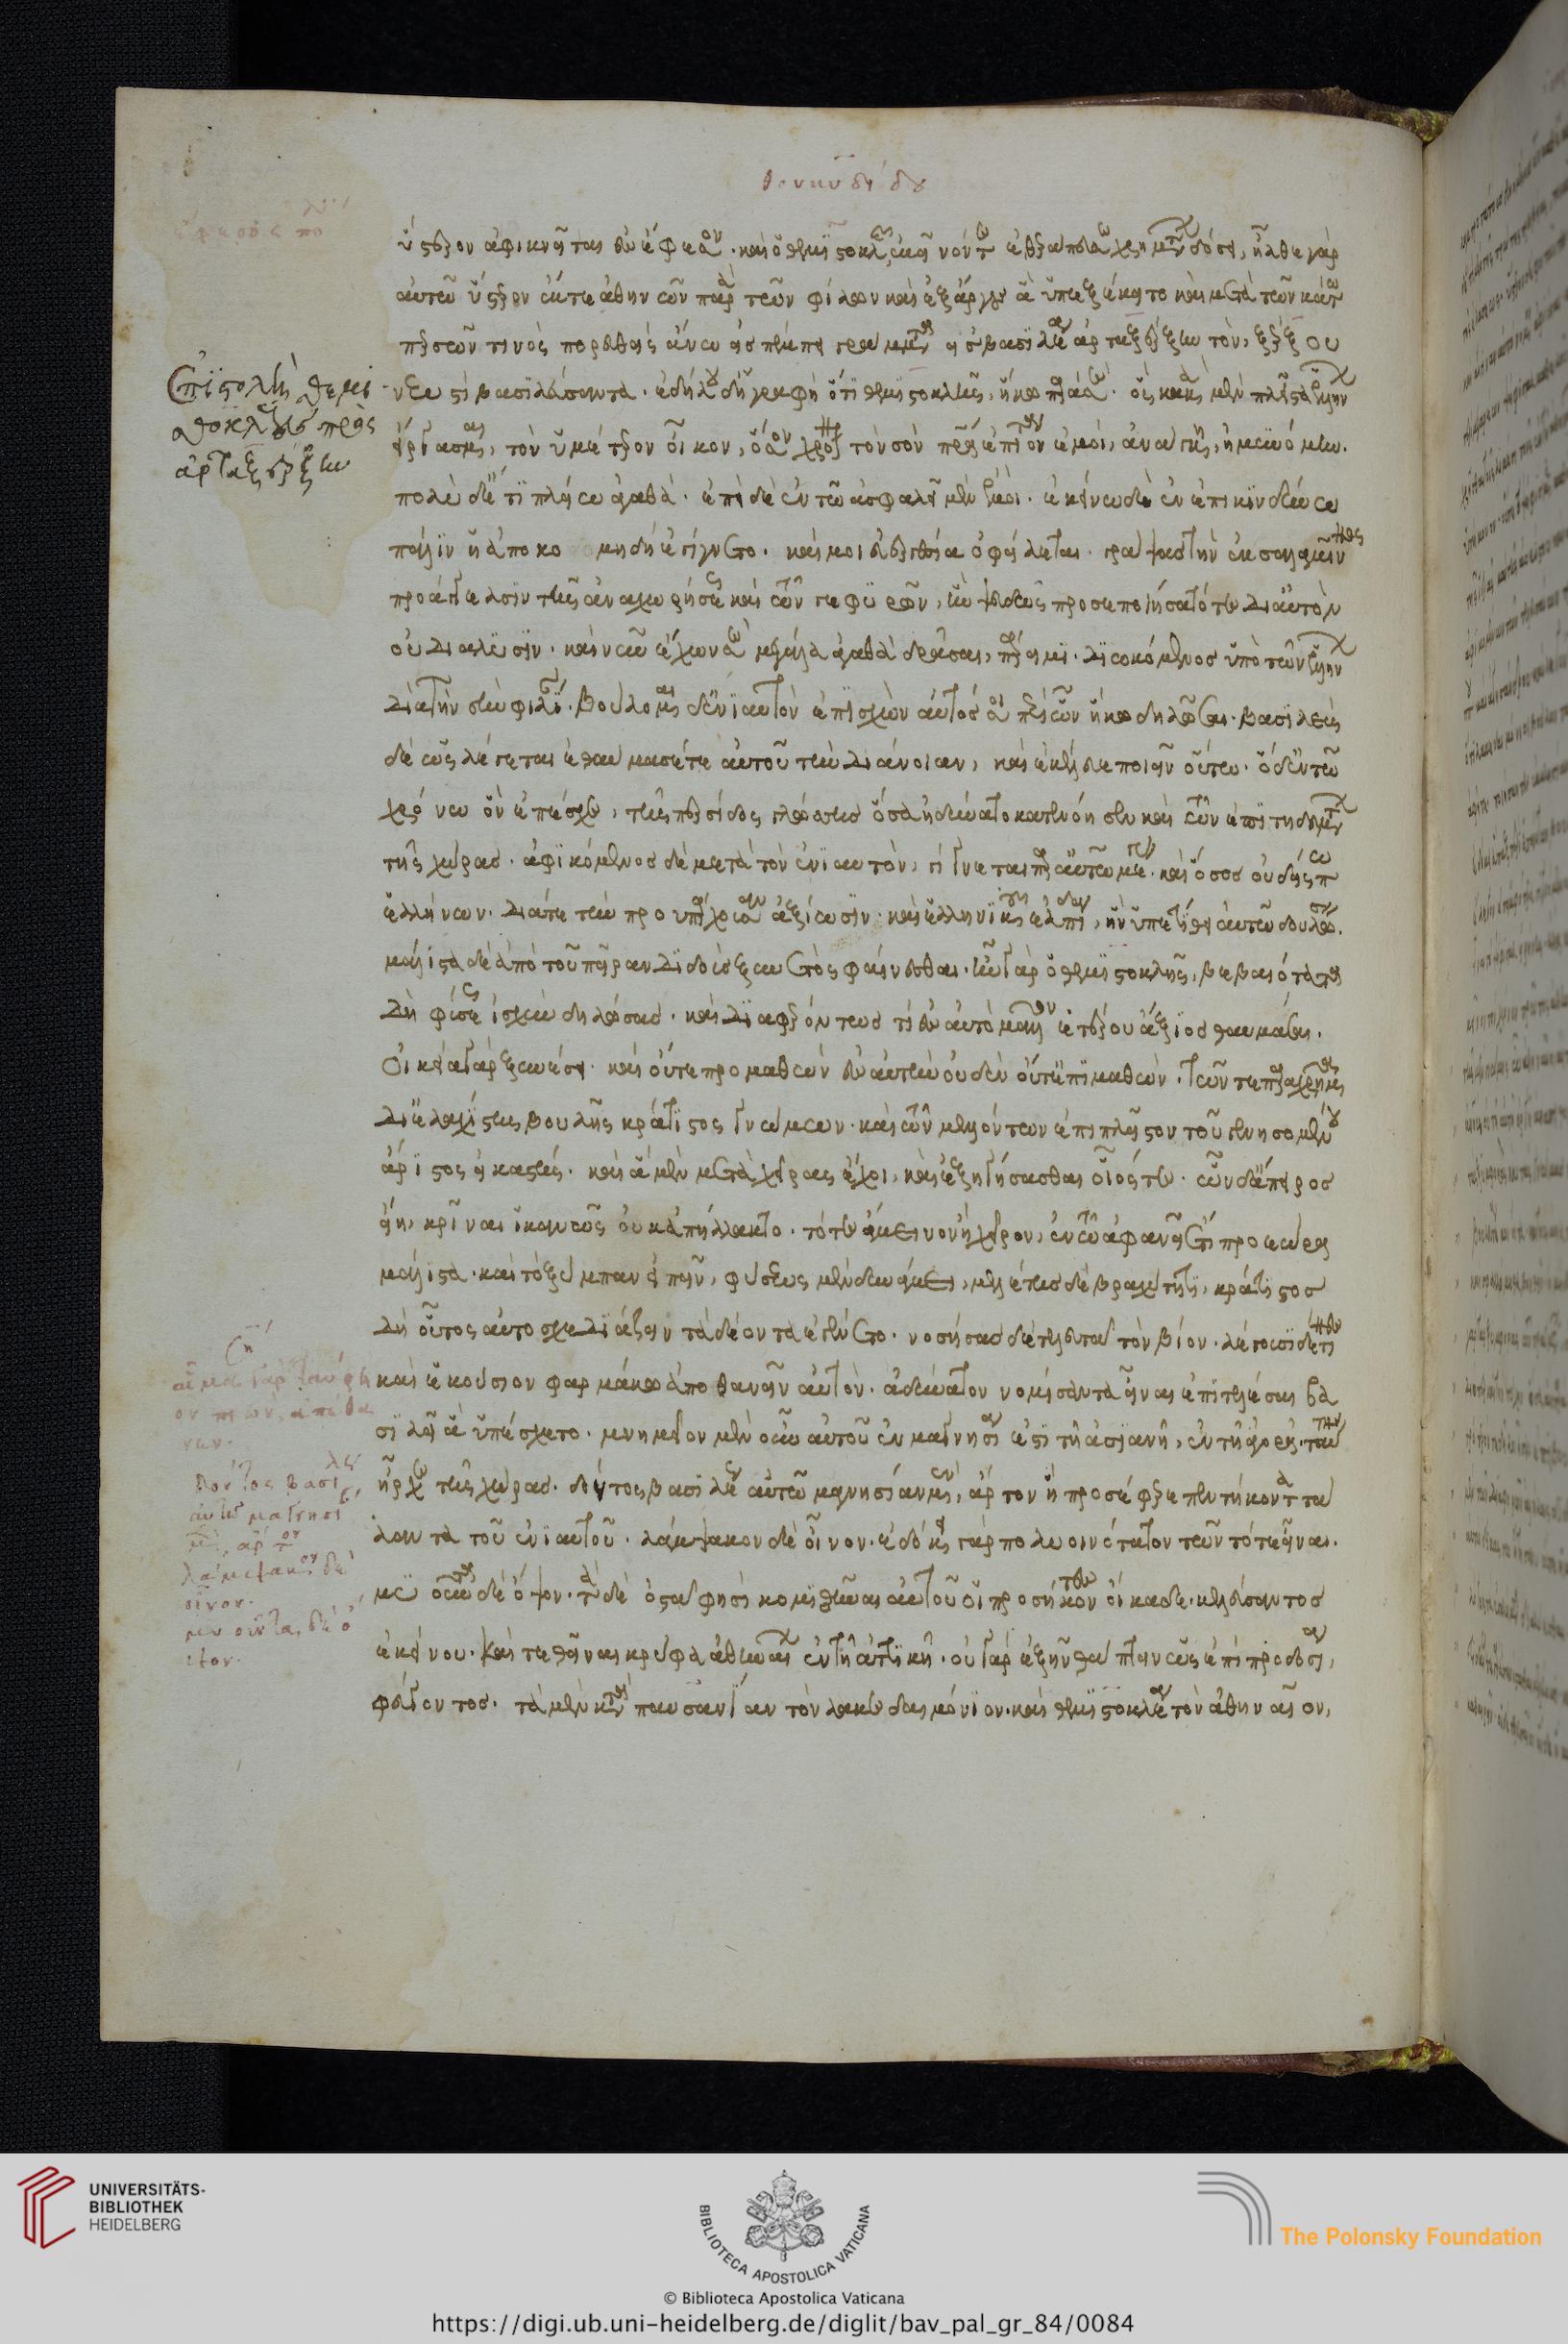 θουκυδίδου
ὕστερον ἀφικνεῖται ἐς ἔφεσον. καὶ ὁ θεμιστοκλῆς ἐκεῖνόν τε ἐθεράπευσε χρημάτων δόσει, ἦλθε γὰρ
αὐτῷ ὕστερον ἔκ τε ἀθηνῶν παρὰ τῶν φίλων καὶ ἐξ ἄργους ἃ ὑπεξέκειτο καὶ μετὰ τῶν κάτω
περσῶν τινὸς πορευθεὶς ἄνω ἐσπέμπει γράμματα ἐς βασιλέα ἀρταξέρξην τὸν ξέρξου
νεωστὶ βασιλεύοντα. ἐδήλου δὲ ἡ γραφὴ ὅτι θεμιστοκλῆς ἥκω παρὰ σέ. ὃς κακὰ μὲν πλεῖστα ἑλλήνων
εἴργασμαι τὸν ὑμέτερον οἶκον, ὅσον χρόνον τὸν σὸν πατέρα ἐπιόντα ἐμοὶ ἀνάγκῃ ἠμυνόμην.
πολὺ δ' ἔτι πλείω ἀγαθά. ἐπειδὴ ἐν τῷ ἀσφαλεῖ μὲν ἐμοί. ἐκείνῳ δὲ ἐν ἐπικινδύνῳ
πάλιν ἡ ἀποκομιδὴ ἐγίγνετο. καί μοι εὐεργεσία ὀφείλεται. γράψας τὴν ἐκ σαλαμῖνος
προάγγελσιν τῆς ἀναχωρήσεως καὶ τὴν τῶν γεφυρῶν, ἣν ψευδῶς προσεποιήσατο τότε δι' αὐτὸν
οὐ διάλυσιν. καὶ νῦν ἔχων σε μεγάλα ἀγαθὰ δρᾶσαι, πάρειμι. διωκόμενος ὑπὸ τῶν ἑλλήνων
διὰ τὴν σὴν φιλίαν. βούλομαι δ' ἐνιαυτὸν ἐπισχὼν αὐτός σοι περὶ ὧν ἥκω δηλῶσαι. βασιλεὺς
δὲ ὡς λέγεται ἐθαύμασέ τε αὐτοῦ τὴν διάνοιαν, καὶ ἐκέλευε ποιεῖν οὕτω. ὁ δ' ἐν τῷ
χρόνῳ ὃν ἐπέσχε, τῆς περσίδος γλώσσης ὅσα ἠδύνατο κατενόησεν καὶ τῶν ἐπιτηδευμάτων
τῆς χώρας. ἀφικόμενος δὲ μετὰ τὸν ἐνιαυτὸν, γίγνεται παρ' αὐτῷ μέγας καὶ ὅσος οὐδείς πω
ἑλλήνων. διά τε τὴν προϋπάρχουσαν ἀξίωσιν. καὶ ἑλληνικοῦ ἐλπίδα, ἣν ὑπετίθει αὐτῷ δουλώσειν.
μάλιστα δὲ ἀπὸ τοῦ πεῖραν διδοὺς ξυνετὸς φαίνεσθαι. ἦν γὰρ ὁ θεμιστοκλῆς, βεβαιότατα
δὴ φύσεως ἰσχὺν δηλώσας. καὶ διαφερόντως τι ἐς αὐτὸ μᾶλλον ἑτέρου ἄξιος θαυμάσαι.
οἰκείᾳ γὰρ ξυνέσει. καὶ οὔτε προμαθὼν ἐς αὐτὴν οὐδὲν οὔτ' ἐπιμαθὼν. τῶν τε παραχρῆμα
δι' ἐλαχίστης βουλῆς κράτιστος γνώμων. καὶ τῶν μελλόντων ἐπὶ πλεῖστον τοῦ γενησομένου
ἄριστος εἰκαστής. καὶ ἃ μὲν μετὰ χεῖρας ἔχοι, καὶ ἐξηγήσασθαι οἷός τε. ὧν δ' ἄπειρος
εἴη, κρῖναι ἱκανῶς οὐκ ἀπήλλακτο. τό τε ἄμεινον ἢ χεῖρον, ἐν τῷ ἀφανεῖ ἔτι προεώρα
μάλιστα. καὶ τὸ ξύμπαν εἰπεῖν, φύσεως μὲν δυνάμει, μελέτης δὲ βραχύτητι, κράτιστος
δὴ οὗτος αὐτοσχεδιάζειν τὰ δέοντα ἐγένετο. νοσήσας δὲ τελευτᾷ τὸν βίον. λέγουσι δέ τινες
καὶ ἑκούσιον φαρμάκῳ ἀποθανεῖν αὐτὸν. ἀδύνατον νομίσαντα εἶναι ἐπιτελέσαι βα
σιλεῖ ἃ ὑπέσχετο. μνημεῖον μὲν οὖν αὐτοῦ ἐν μαγνησίᾳ ἐστὶ τῇ ἀσιανῇ, ἐν τῇ ἀγορᾷ. ταύτης
ἦρχε τῆς χώρας. δόντος βασιλέως αὐτῷ μαγνησίαν μὲν, ἄρτον ἣ προσέφερε πεντήκοντα τά
λαντα τοῦ ἐνιαυτοῦ. λάμψακον δὲ οἶνον. ἐδόκει γὰρ πολυοινότατον τῶν τότε εἶναι.
μυοῦντα δὲ ὄψον. τὰ δὲ ὀστᾶ φησὶ κομισθῆναι αὐτοῦ οἱ προσήκοντες οἴκαδε. κελεύσαντος
ἐκείνου. καὶ τεθῆναι κρύφα ἀθηναίων ἐν τῇ ἀττικῇ. οὐ γὰρ ἐξῆν θάπτειν ὡς ἐπὶ προδοσίᾳ,
φεύγοντος. τὰ μὲν κατὰ παυσανίαν τὸν λακεδαιμόνιον. καὶ θεμιστοκλέα τὸν ἀθηναῖον,
ἐπιστολὴ θεμι
στοκλέους πρὸς
ἀρταξέρξην
αἷμα γὰρ ταύρει
ον πιὼν, ἀπέθα
νεν.
δόντος βασιλέως
αὐτῷ μαγνησί
μὲν, ἄρτον
λάμψακον δὲ
οἶνον.
μυοῦντα δὲ ὄ
ψον.
UNIVERSITÄTS-
BIBLIOTHEK
HEIDELBERG
BIBLIOTECA APOSTOLICA VATICANA
The Polonsky Foundation
© Biblioteca Apostolica Vaticana
https://digi.ub.uni-heidelberg.de/diglit/bav_pal_gr_84/0084